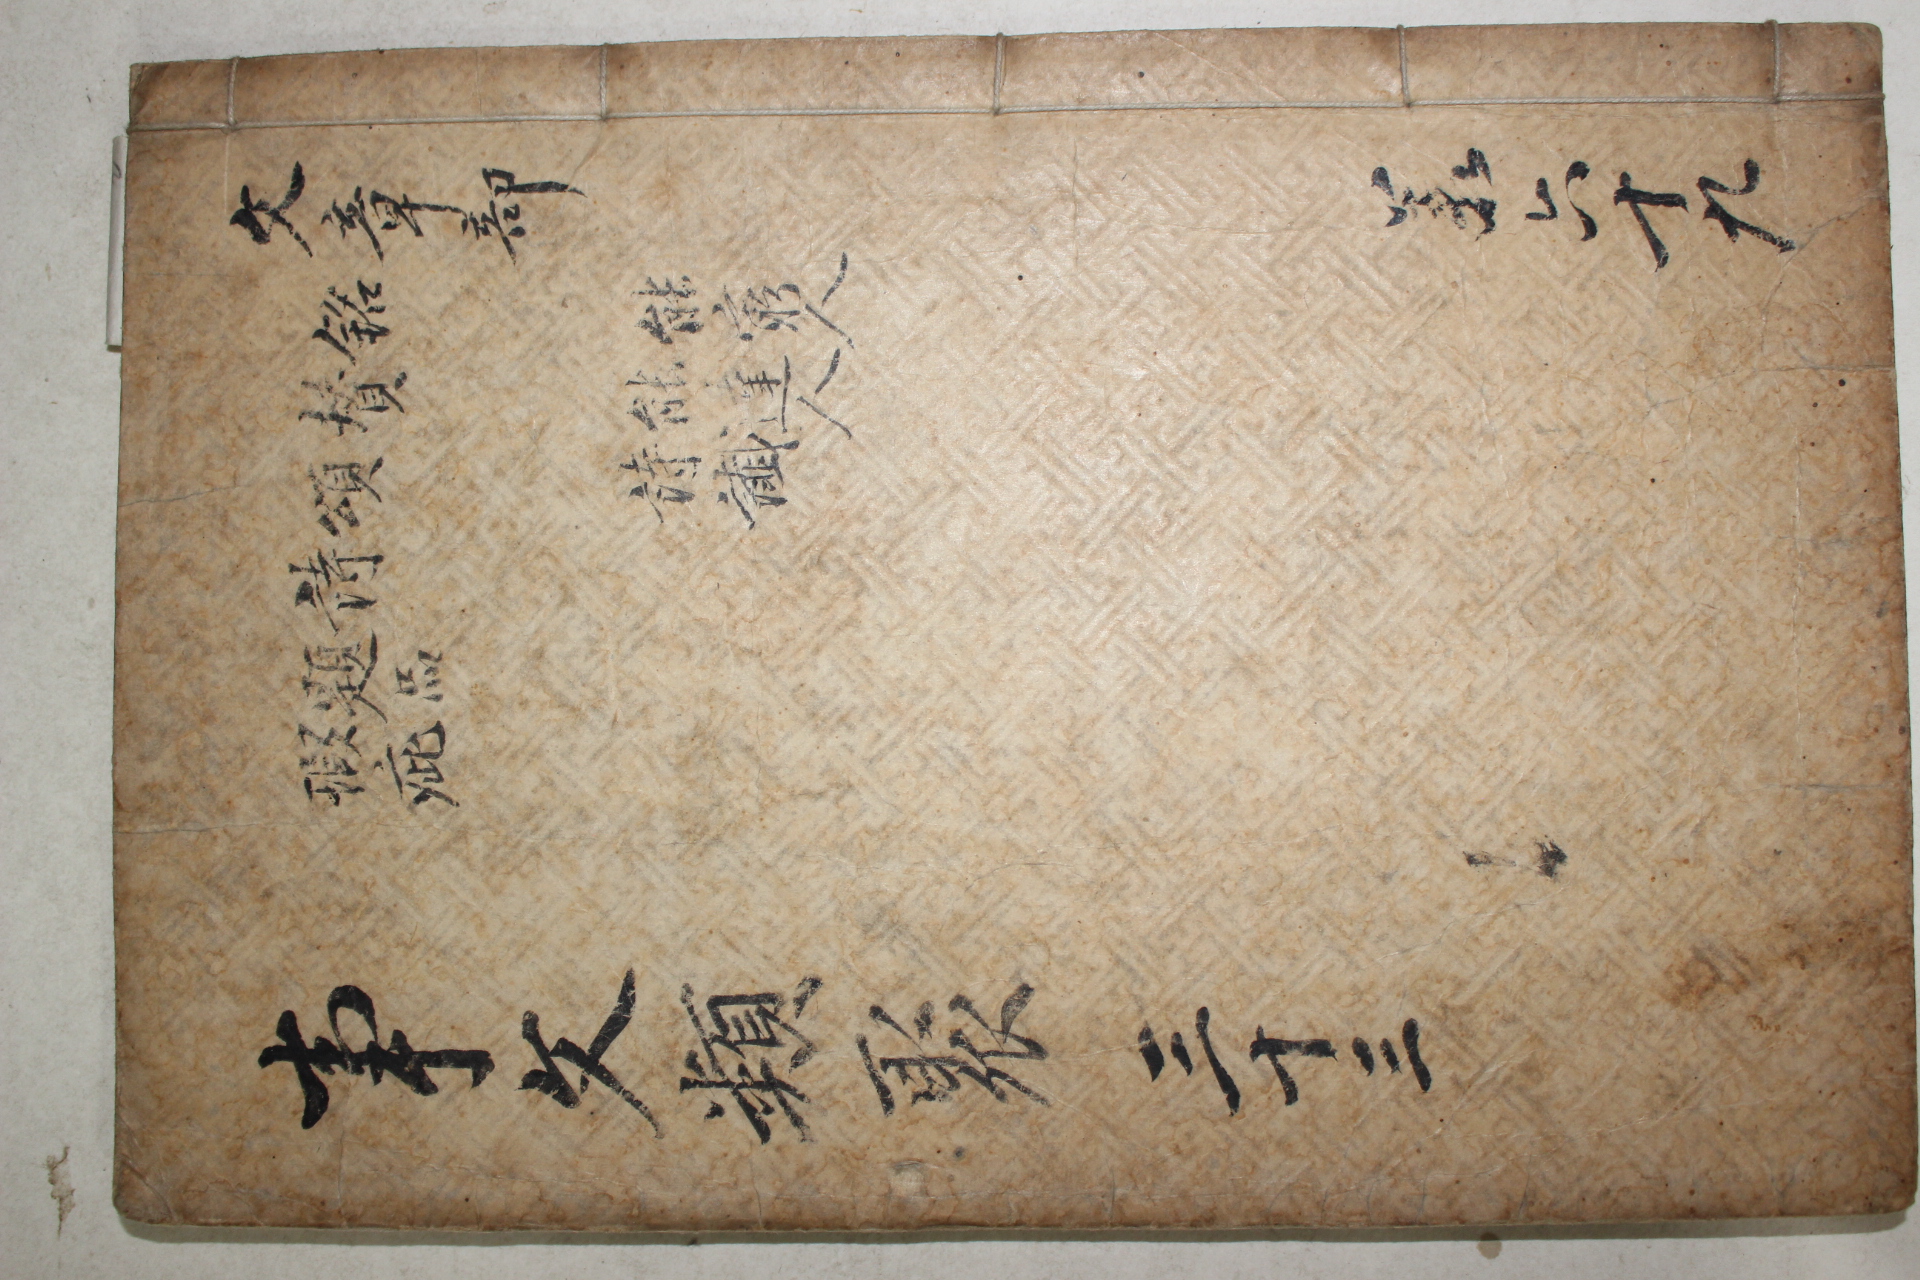 文章部
銘
贊
頌
詩
題品
瑕疵
能窮人
能達人
詩讖
共六十九
事文類聚 三十三